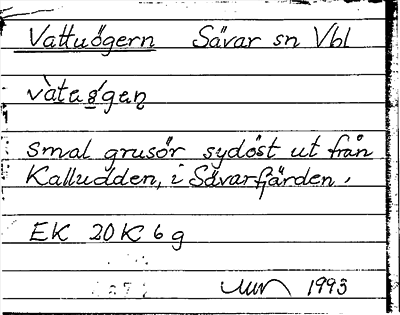 Vattuögern Sävar sn Vbl
smal grusör sydöst ut från
Kalludden, i Sävarfjärden.
EK 20K 6g
1993